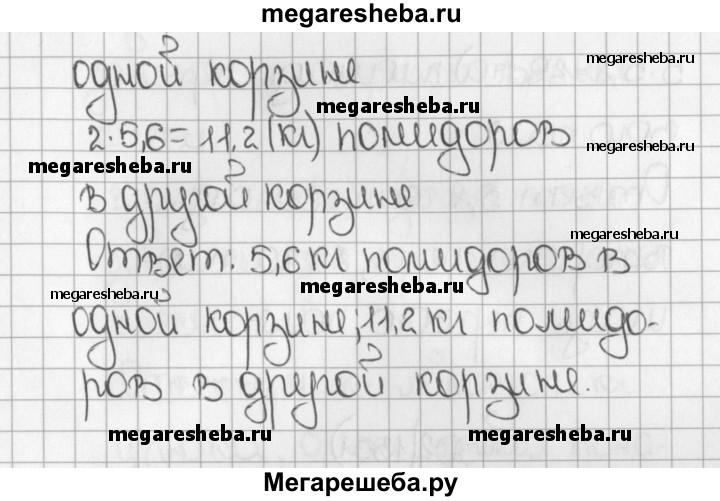 megaresheba.ru
одной корзине
megaresheba.ru
megaresheba.ru
2·5,6=11,2(кг) помидоров
megaresheba.ru
megaresheba.ru
в другой корзине
megaresheba.ru
Ответ: 5,6 кг помидоров в
megaresheba.ru
megaresheba.ru
одной корзине; 11,2 кг помидо-
megaresheba.ru
ров в другой корзине.
megaresheba.ru
megaresheba.ru
Мегарешеба.ру